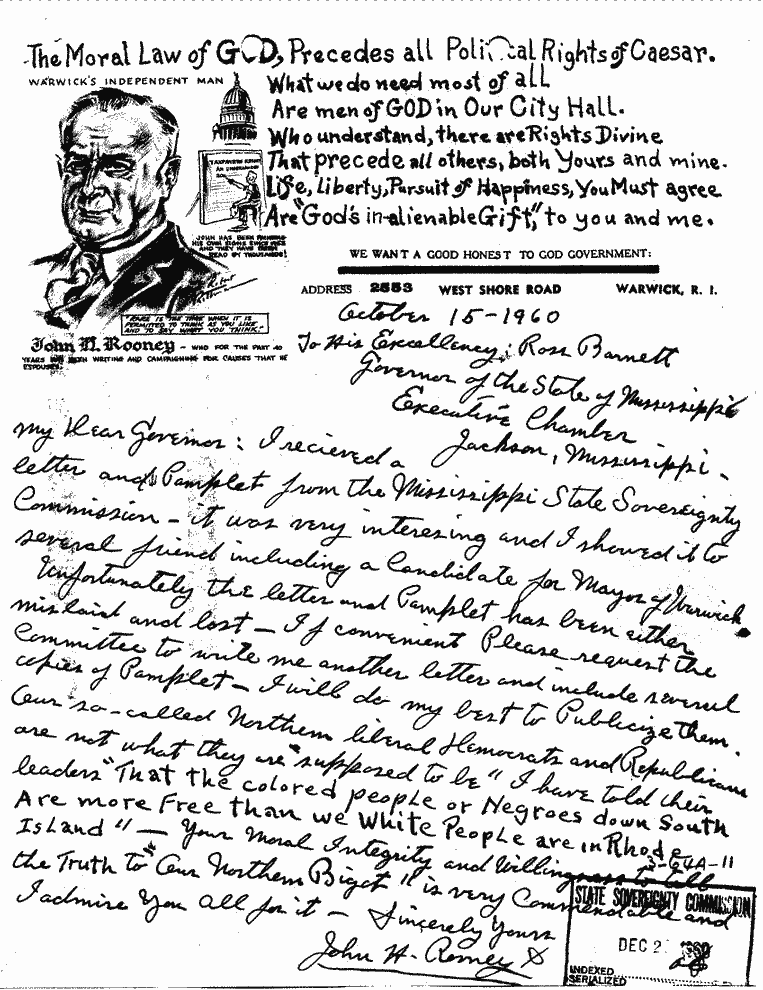 The Moral Law of GOD, Precedes all Political Rights of Caesar.
WARWICK'S INDEPENDENT MAN
What we do need most of all
Are men of GOD in Our City Hall.
Who understand, there are Rights Divine
That precede all others, both Yours and mine.
Life, Liberty, Pursuit of Happiness, You Must agree
Are "God's in-alienable Gift," to you and me.
JOHN HAS BEEN PAINTING
HIS OWN SIGNS SINCE
AND THEY HAVE BEEN
READ BY THOUSANDS!
WE WANT A GOOD HONEST TO GOD GOVERNMENT:
ADDRESS 2553 WEST SHORE ROAD WARWICK, R. I.
"RARE IS THE TIME WHEN IT IS
PERMITTED TO THINK AS YOU LIKE
AND TO SAY WHAT YOU THINK."
John H. Rooney - WHO FOR THE PAST 40
YEARS HAS BEEN WRITING AND CAMPAIGNING FOR CAUSES THAT HE
ESPOUSES.
October 15-1960
To His Excellency; Ross Barnett
Governor of the State of Mississippi
Executive Chamber
Jackson, Mississippi -
My Dear Governor: I recieved a
letter and Pamplet from the Mississippi State Sovereignty
Commission - it was very interesing and I showed it to
several friend including a Candidate for Mayor of Warwick.
Unfortunately the letter and Pamplet has been either
mislaid and lost - If convenient Please request the
Committee to write me another letter and include several
copies of Pamplet - I will do my best to Publicize them.
Our so-called Northern liberal Democrats and Republicans
are not what they are "supposed to be" I have told their
leaders "That the colored people or Negroes down South
Are more Free than we White People are in Rhode
Island" - Your Moral Integrity and Willingness to tell
3-64A-11
the Truth to "Our Northern Bigot" is very Commendable and
I admire You all for it - Sincerely Yours
John H. Rooney
STATE SOVEREIGNTY COMMISSION
DEC 2 1960
INDEXED
SERIALIZED